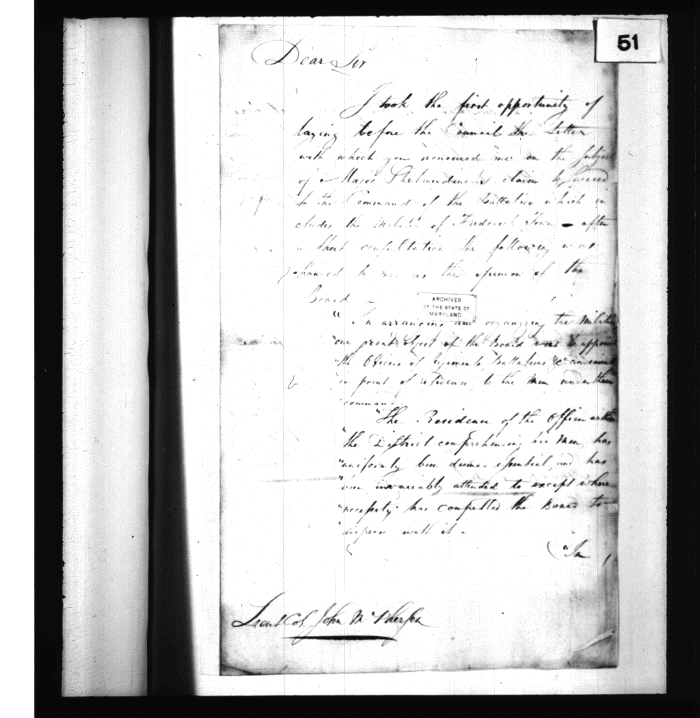 51
Dear Sir
I took the first opportunity of
laying before the Council the Letter
with which you honoured me on the subject
of Major claim to succeed
to the Command of the Battalion which in
cludes the Militia of Frederick Town — after
a short consultation the following was
to me as the opinion of the
Board —
ARCHIVES
OF THE STATE OF
MARYLAND
"In arranging and organizing the Militia
"one great object of the Board was to appoint
"the Officers of Regiments, Battalions & convenient
in point of residence to the men under their
"command.
"The Residence of the Officer within
"the District comprehending his men, has
"uniformly been deemed essential, and has
"been invariably attended to except where
"necessity has compelled the Board to
"dispense with it —
"In
Lieut Col. John McPherson